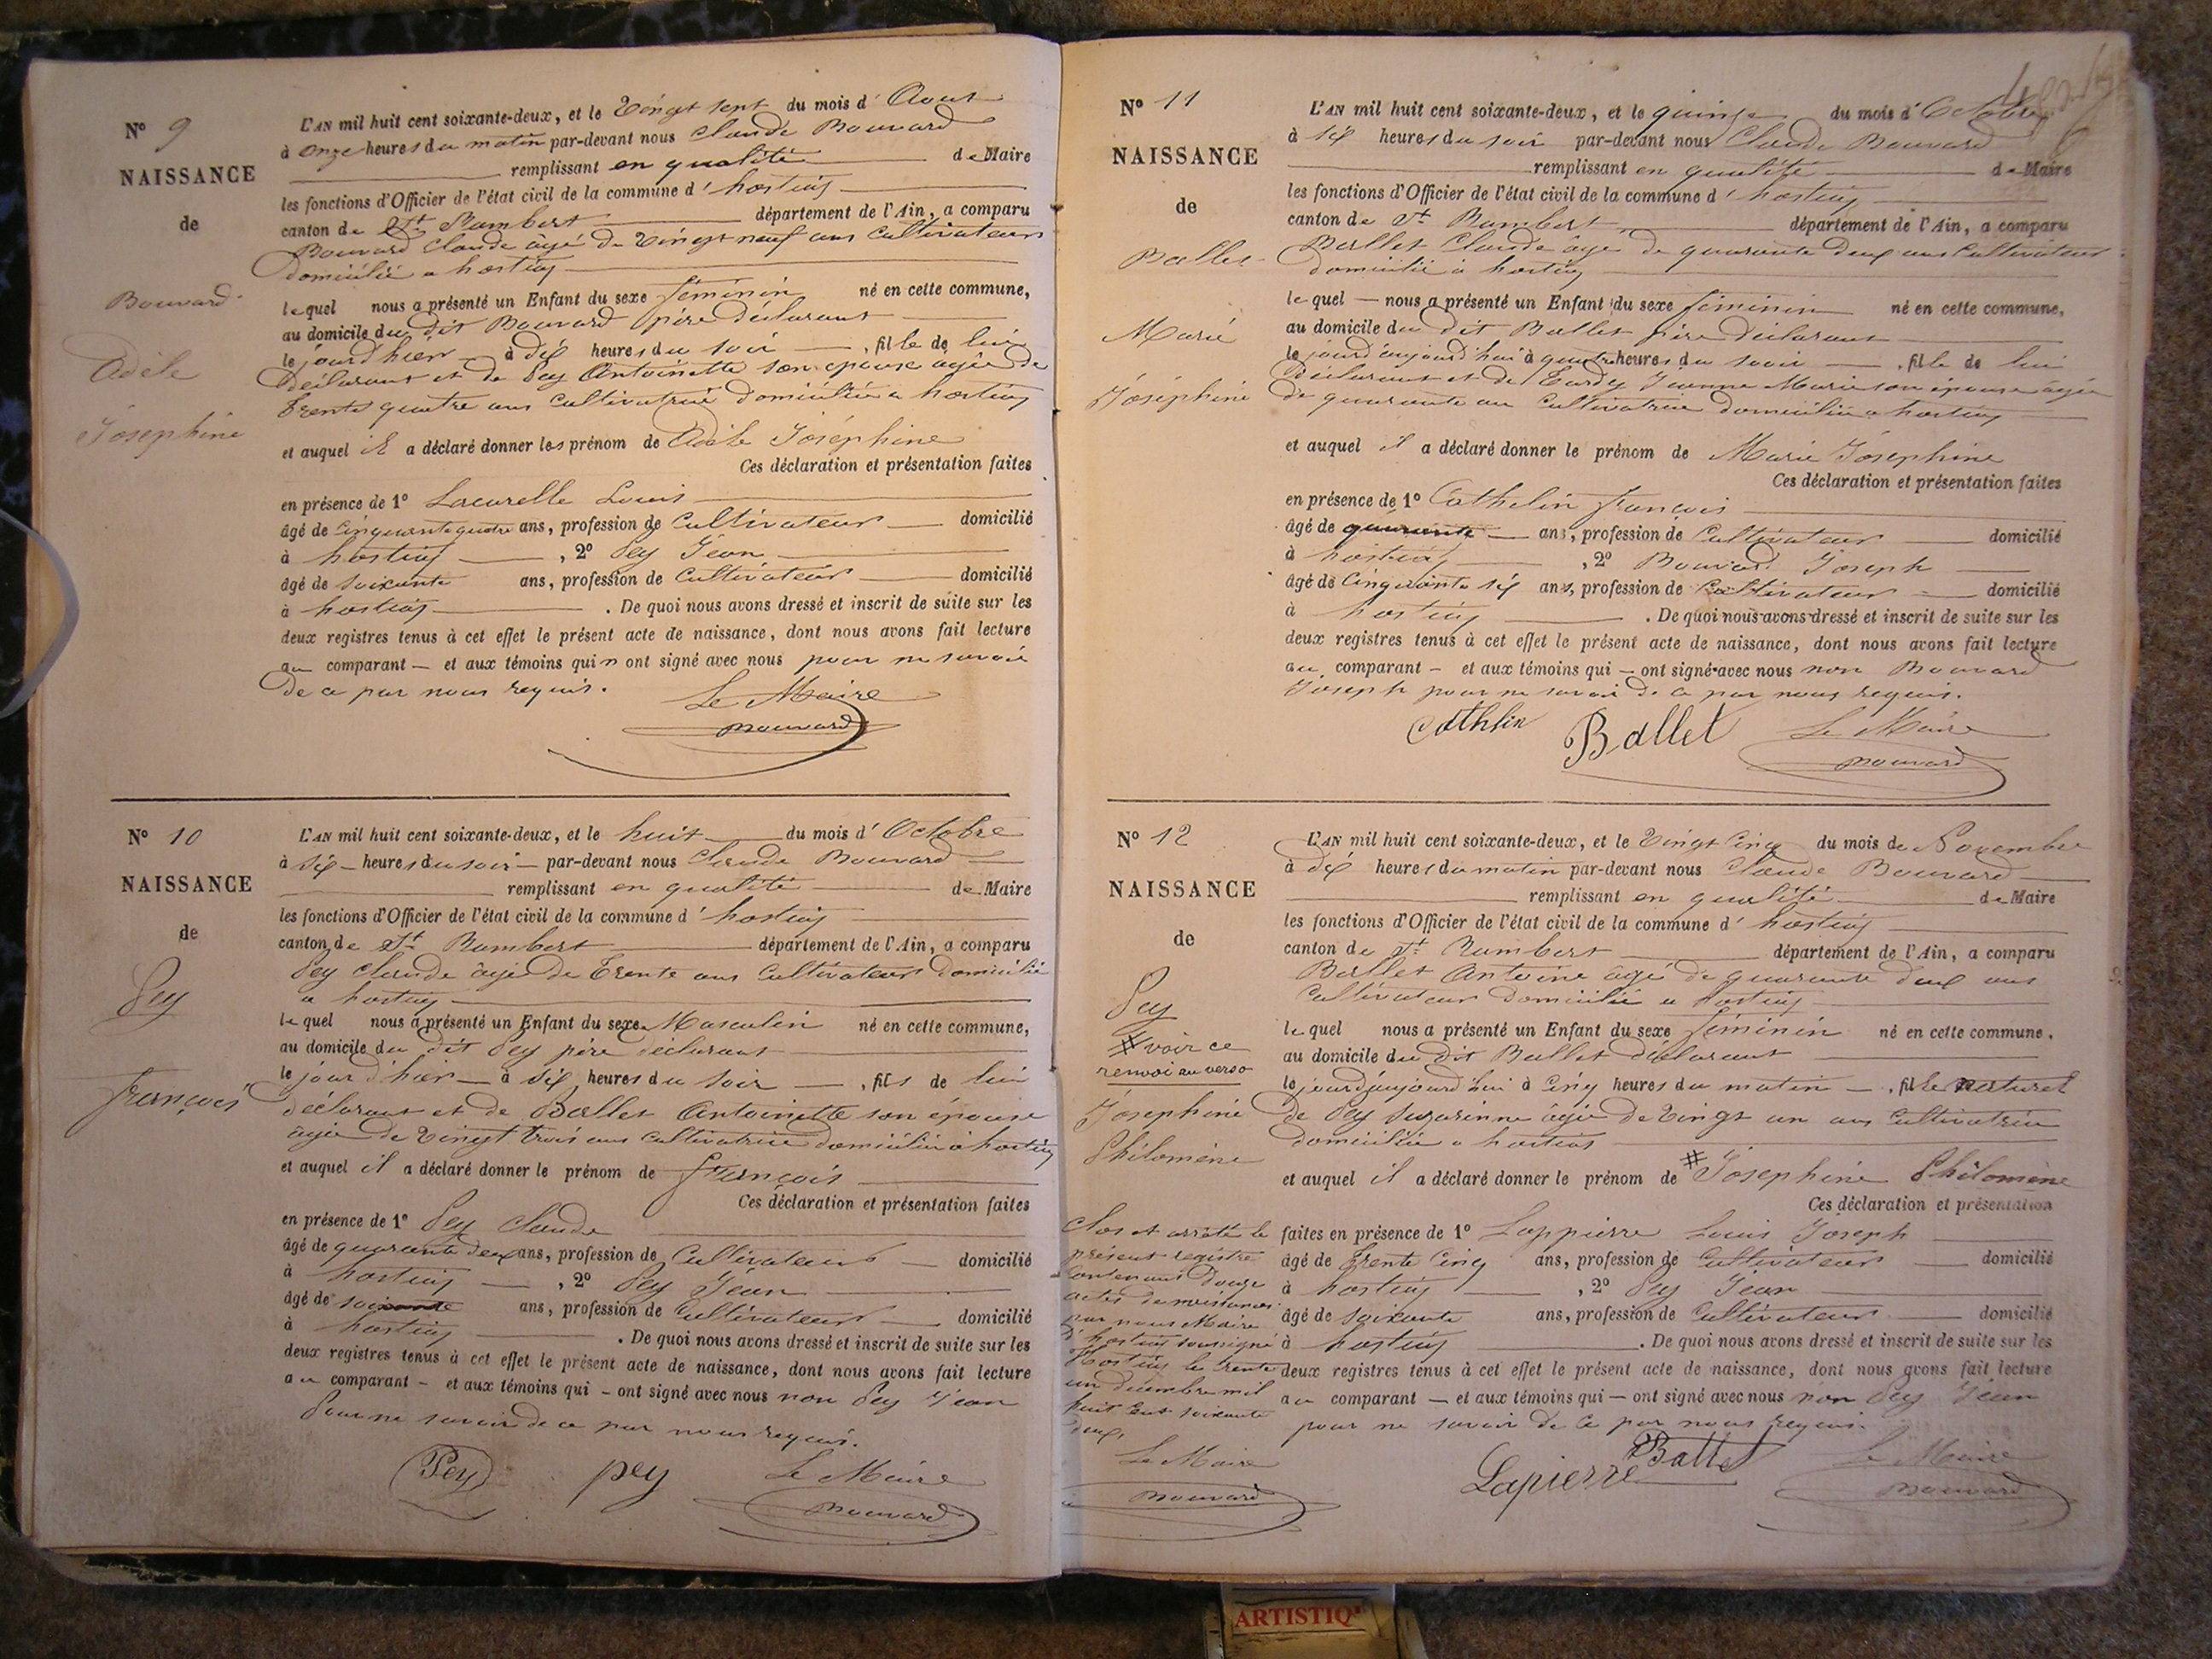 N° 9
NAISSANCE
de
Bouvard
Adèle
Joséphine
L'AN mil huit cent soixante-deux, et le Vingt sept du mois d' Aout
à onze heures du matin par-devant nous Claude Bouvard
remplissant en qualité de Maire
les fonctions d'Officier de l'état civil de la commune d' hostiaz
canton de St Rambert département de l'Ain, a comparu
Bouvard Claude âgé de Vingt neuf ans Cultivateur
domicilié a hostiaz
lequel nous a présenté un Enfant du sexe féminin né en cette commune,
au domicile du dit Bouvard père déclarant
le jour d'hier à dix heures du soir, fille de lui
déclarant et de Pey Antoinette son épouse âgée de
trente quatre ans Cultivatrice domiciliée a hostiaz
et auquel il a déclaré donner les prénom de Adèle Joséphine
Ces déclaration et présentation faites
en présence de 1° Louis
âgé de Cinquante quatre ans, profession de Cultivateur domicilié
à hostiaz, 2° Pey Jean
âgé de soixante ans, profession de Cultivateur domicilié
à hostiaz. De quoi nous avons dressé et inscrit de suite sur les
deux registres tenus à cet effet le présent acte de naissance, dont nous avons fait lecture
au comparant — et aux témoins qui n ont signé avec nous pour ne savoir
de ce par nous requis.
Le Maire
Bouvard
N° 10
NAISSANCE
de
Pey
François
L'AN mil huit cent soixante-deux, et le huit du mois d' Octobre
à six heures du soir par-devant nous Claude Bouvard
remplissant en qualité de Maire
les fonctions d'Officier de l'état civil de la commune d' hostiaz
canton de St Rambert département de l'Ain, a comparu
Pey Claude âgé de Trente ans Cultivateur domicilié
a hostiaz
lequel nous a présenté un Enfant du sexe Masculin né en cette commune,
au domicile du dit Pey père déclarant
le jour d'hier à six heures du soir, fils de lui
déclarant et de Ballet Antoinette son épouse
âgée de vingt trois ans cultivatrice domiciliée à hostiaz
et auquel il a déclaré donner le prénom de François
Ces déclaration et présentation faites
en présence de 1° Pey Claude
âgé de quarante deux ans, profession de Cultivateur domicilié
à hostiaz, 2° Pey Jean
âgé de soixante ans, profession de Cultivateur domicilié
à hostiaz. De quoi nous avons dressé et inscrit de suite sur les
deux registres tenus à cet effet le présent acte de naissance, dont nous avons fait lecture
au comparant — et aux témoins qui — ont signé avec nous non Pey Jean
Pour ne savoir de ce par nous requis.
Pey pey Le Maire
Bouvard
N° 11
NAISSANCE
de
Ballet
Marie
Joséphine
L'AN mil huit cent soixante-deux, et le quinze du mois d' Octobre
à six heures du soir par-devant nous Claude Bouvard
remplissant en qualité de Maire
les fonctions d'Officier de l'état civil de la commune d' hostiaz
canton de St Rambert département de l'Ain, a comparu
Ballet Claude âgé de quarante deux ans Cultivateur
domicilié à hostiaz
lequel — nous a présenté un Enfant du sexe féminin né en cette commune,
au domicile du dit Ballet père déclarant
le jourd'aujourd'hui à quatre heures du soir, fille de lui
déclarant et de Jeanne Marie son épouse âgée
de quarante an Cultivatrice domiciliée a hostiaz
et auquel il a déclaré donner le prénom de Marie Joséphine
Ces déclaration et présentation faites
en présence de 1° Cathelin françois
âgé de quarante ans, profession de Cultivateur domicilié
à hostiaz, 2° Bouvard Joseph
âgé de Cinquante six ans, profession de Cultivateur domicilié
à hostiaz. De quoi nous avons dressé et inscrit de suite sur les
deux registres tenus à cet effet le présent acte de naissance, dont nous avons fait lecture
au comparant — et aux témoins qui — ont signé avec nous non Bouvard
Joseph pour ne savoir de ce par nous requis.
Cathlin Ballet Le Maire
Bouvard
N° 12
NAISSANCE
de
Pey
# voir ce
renvoi au verso
Joséphine
Philomène
L'AN mil huit cent soixante-deux, et le Vingt Cinq du mois de Novembre
à dix heures du matin par-devant nous Claude Bouvard
remplissant en qualité de Maire
les fonctions d'Officier de l'état civil de la commune d' hostiaz
canton de St Rambert département de l'Ain, a comparu
Ballet Antoine âgé de quarante deux ans
Cultivateur domicilié a hostiaz
lequel nous a présenté un Enfant du sexe féminin né en cette commune.
au domicile du dit Ballet déclarant
le jourd'aujourd'hui à Cinq heures du matin —, fille naturel
de Pey Suzarinne âgée de Vingt un ans Cultivatrice
domiciliée a hostiaz
et auquel il a déclaré donner le prénom de # Joséphine Philomène
Ces déclaration et présentation
faites en présence de 1° Lappierre Louis Joseph
âgé de trente Cinq ans, profession de Cultivateur domicilié
à hostiaz, 2° Pey Jean
âgé de soixante ans, profession de Cultivateur domicilié
à hostiaz. De quoi nous avons dressé et inscrit de suite sur les
deux registres tenus à cet effet le présent acte de naissance, dont nous avons fait lecture
au comparant — et aux témoins qui — ont signé avec nous non Pey Jean
pour ne savoir de ce par nous requis.
Lapierre Ballet Le Maire
Bouvard
Clos et arrêté le
présent registre
Contenant douze
actes de naissances
par nous Maire
d'hostiaz soussigné
Hostiaz le trente
un décembre mil
huit Cent soixante
deux,
Le Maire
Bouvard
ARTISTIQ